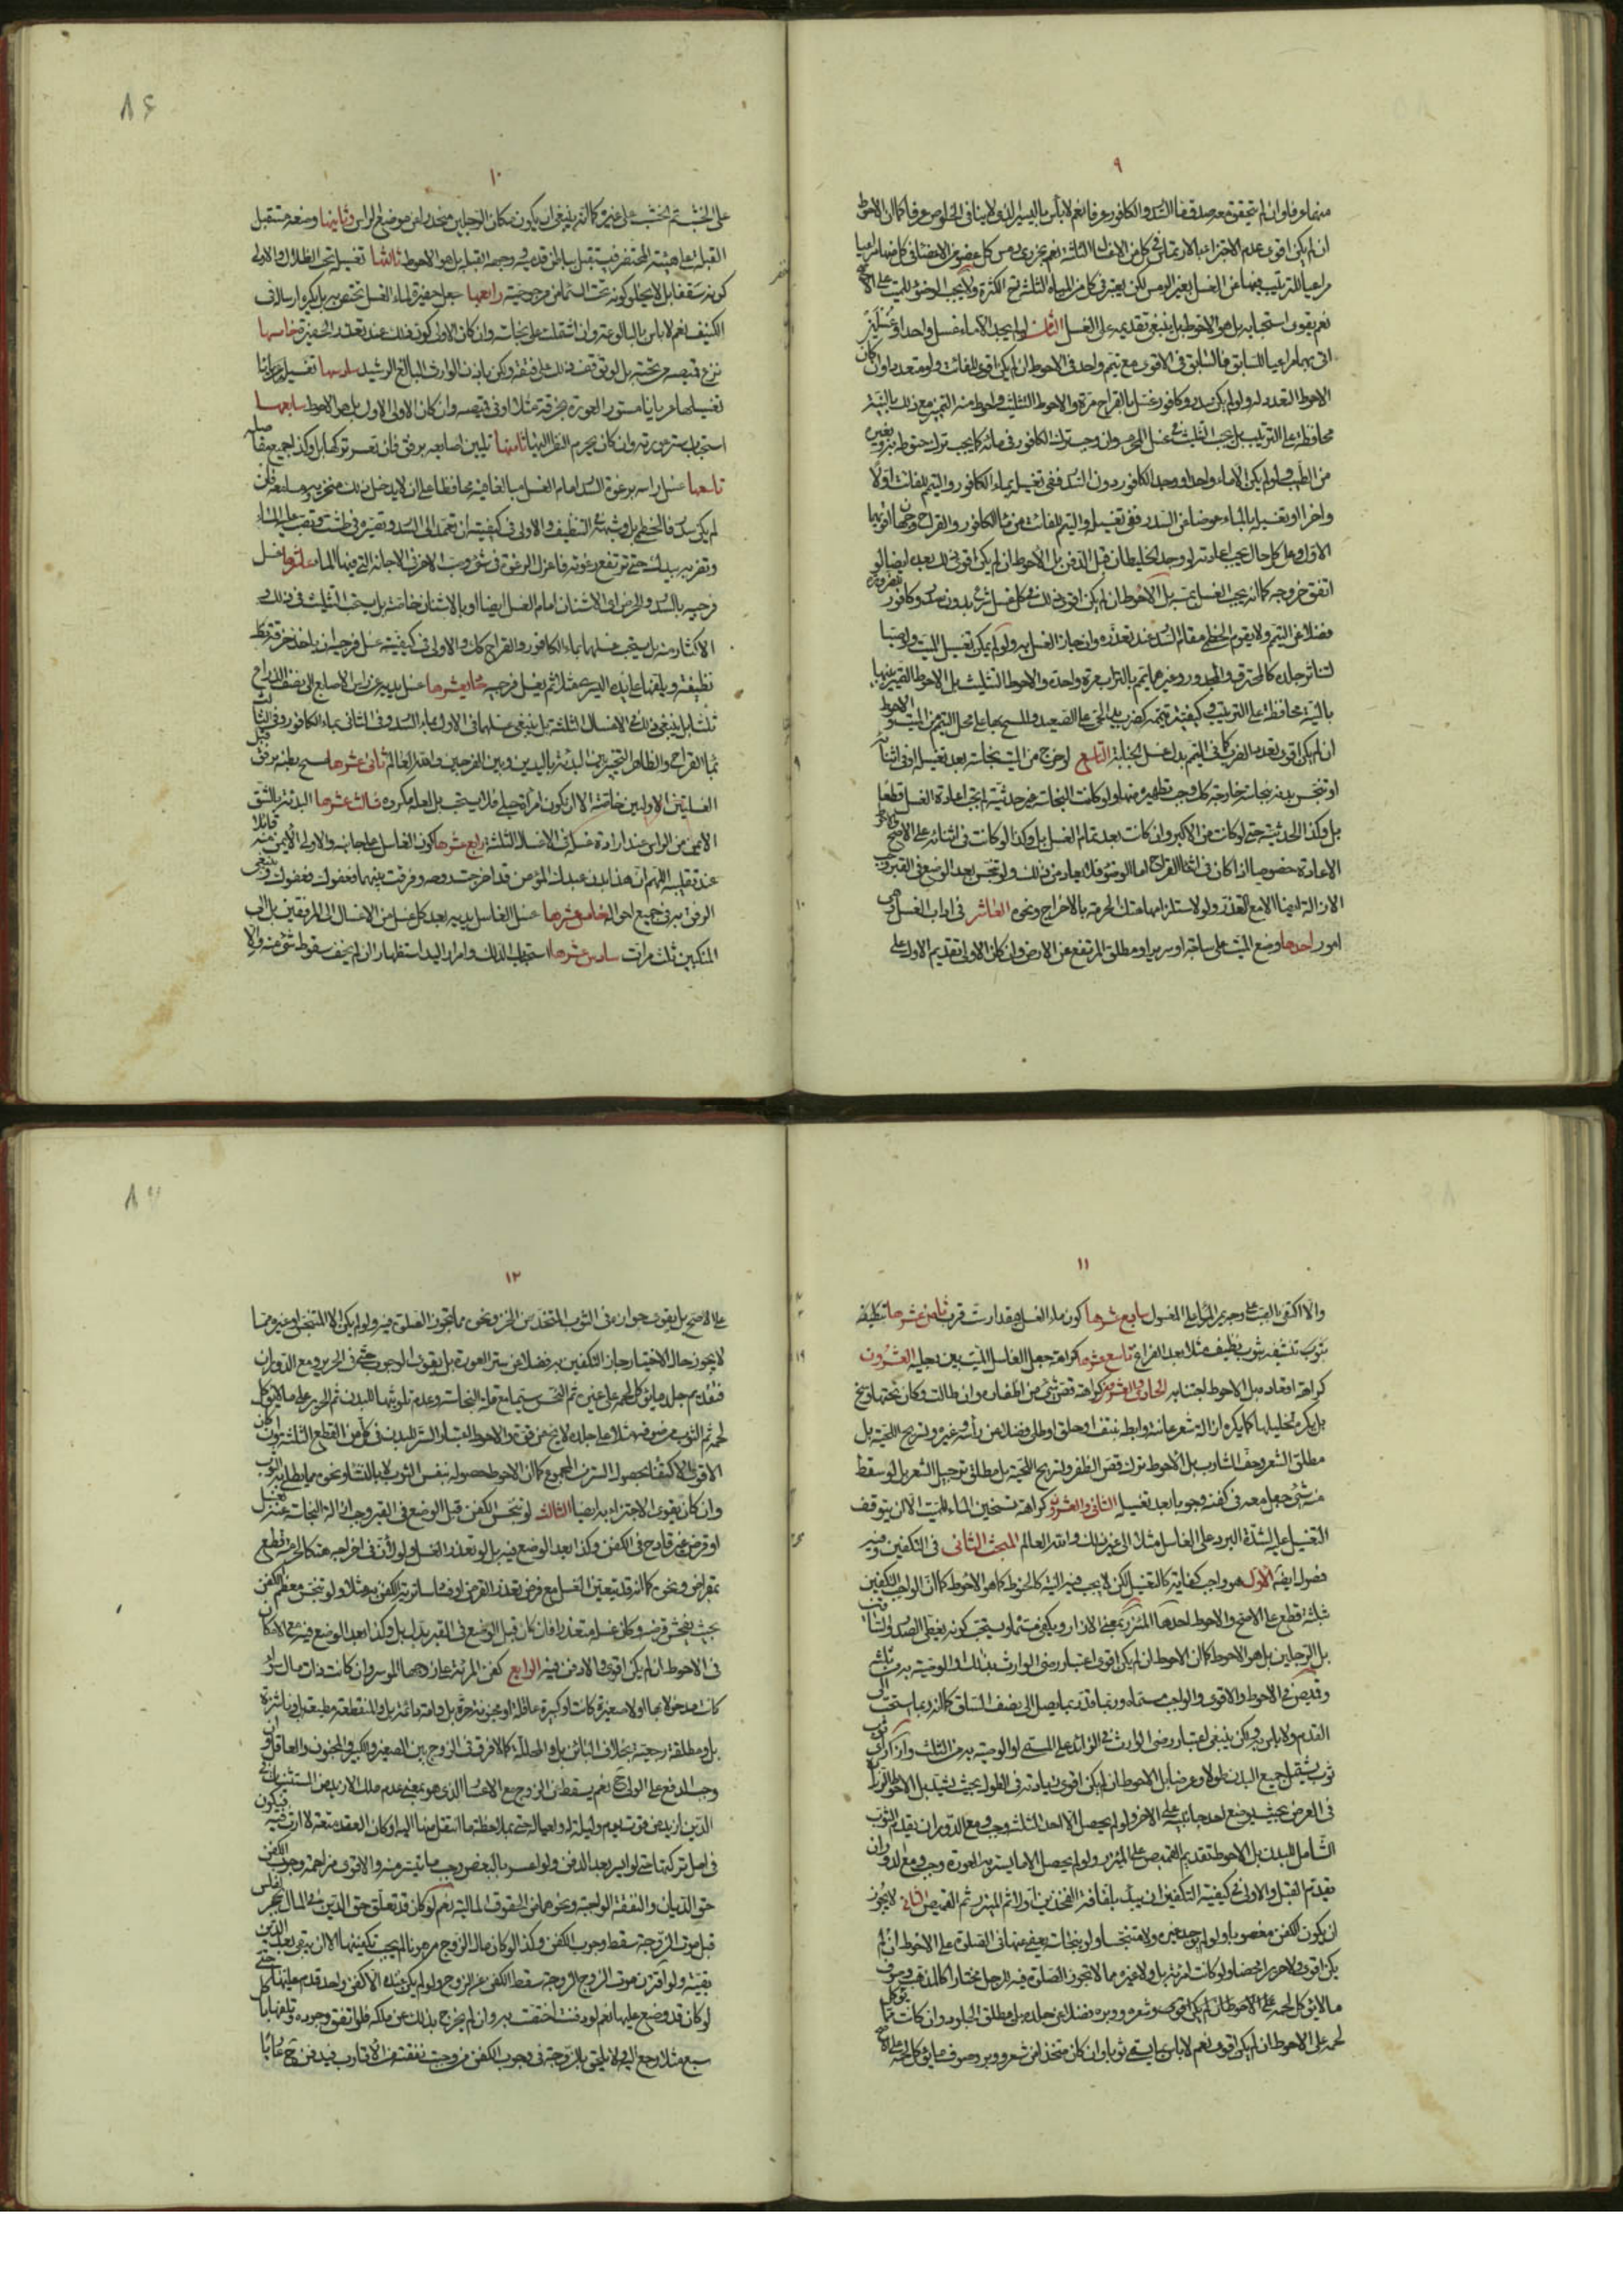 ٩
منهما عرفا وان لم يتحقق معه صدق ماء السدر والكافور عرفا نعم لا بأس باليسير الذى لا ينافى الخلوص عرفا كما ان الاحوط
ان لم يكن اقوى عدم الاجتزاء بالارتماس فى كل من الاغسال الثلثة نعم يجزى رمس كل عضو من الاعضاء فى كل منها مراعيا
مراعيا للترتيب فيها عن الغسل بغير الرمس لكن يعتبر فى كل من المياه الثلث الكثرة ولا يجب الوضوء للميت على الاصح
نعم يقوى استحبابه بل هو الاحوط بل ينبغى تقديمه على الغسل الثامن لو لم يجد الا ماء غسل واحد او غسلين
اتى بهما مراعيا للسابق فالسابق فى الاقوى مع تيمم واحد فى الاحوط ان لم يكن اقوى للفائت ولو متعددا وان كان
الاحوط التعدد له ولو لم يكن سدر وكافور غسل بالقراح مرة والاحوط التثليث واحوط منه التميز مع ذلك بالنية
محافظة على الترتيب بل يجب التثليث فى غسل المحرم وان وجب ترك الكافور فى مائه كما يجب ترك حنوطه به وبغيره
من الطيب ولو لم يكن الا ماء واحد او وجد الكافور دون السدر ففى تغسيله بماء الكافور والتيمم للفائت اولا
واخرا او تغسيله بالماء عوضا عن السدر
الاول وعلى كل حال يجب اعادته لو وجد الخليطان قبل الدفن بل الاحوط ان لم يكن اقوى ذلك بعده ايضا لو
اتفق خروجه كما انه يجب الغسل بمسه بل الاحوط ان لم يكن اقوى ذلك فى كل غسل شرع بدون سدر وكافور
فضلا عن التيمم ولا يقوم الخطمى مقام السدر عند تعذره وان جاز الغسل به ولو لم يمكن تغسيل الميت ولو صبا
لتناثر جلده كالمحترق والمجدور وغيرهما يمم بالتراب مرة واحدة والاحوط التثليث بل الاحوط التميز بينها
بالنية محافظة على الترتيب وكيفية تيممه كضرب يد الحى على الصعيد والمسح بها على محل التيمم من الميت والاحوط
ان لم يكن اقوى تعدد الضرب كما فى التيمم بدل غسل الجنابة التاسع لو خرج من الميت نجاسة بعد تغسيله او فى اثنائه
او تنجس بدنه بنجاسة خارجة كل وجب تطهيره منها ولو كانت النجاسة غير حدثية لم يجب اعادة الغسل قطعا
بل وكذا الحدثية حتى لو كانت من الاكبر وان كانت بعد تمام الغسل بل وكذا لو كانت فى اثنائه على الاصح
الاعادة خصوصا اذا كان فى اثناء القراح اما الوضوء فلا يعاد من ذلك ولو تنجس بعد الوضع فى القبر وجب
الازالة ايضا الا مع التعذر ولو لاستلزامها هتك الحرمة بالاخراج ونحوه العاشر فى اداب الغسل وهى
امور احدها وضع الميت على ساجة او سرير او مطلق المرتفع عن الارض وان كان الاولى تقديم الاول على
٨٦
١٠
على الخشب ثم الخشب على غيره كما انه ينبغى ان يكون مكان الرجلين منحدرا عن موضع الراس وثانيها وضعه مستقبل
القبلة على هيئة المحتضر فيستقبل بباطن قدميه ووجهه القبلة بل هو الاحوط ثالثها تغسيله تحت الظلال والاولى
كونه سقفا بل لا يخلو كونه تحت السماء من مرجوحية رابعها جعل حفيرة لماء الغسل تختص به بل يكره ارساله فى
الكنيف نعم لا باس بالبالوعة وان اشتملت على نجاسة وان كان الاولى كون ذلك عند تعذر الحفيرة خامسها
نزع قميصه من تحته بل لو توقف ذلك على فتقه ولكن باذن الوارث البالغ الرشيد سادسها تغسيله عريانا
تغسيلها عريانا مستور العورة بخرقة مثلا او فى قميصه وان كان الاولى الاول بل هو الاحوط سابعها
استحباب ستر عورته وان كان يحرم النظر اليها ثامنها تليين اصابعه برفق فان تعسر تركها بل وكذا جميع مفاصله
تاسعها غسل راسه برغوة السدر امام الغسل مبالغا فيه محافظا على ان لا يدخل ذلك منخريه ومسامعه فان
لم يكن سدر فالخطمى بل وشبهه فى التنظيف والاولى فى كيفيته ان تعمد الى السدر وتصيره فى طشت وتصب عليه الماء
وتضربه بيدك حتى ترتفع رغوته فاعزل الرغوة فى شىء وصب الاخر فى الاجانة التى فيها الماء عاشرها غسل
فرجيه بالسدر والحرض اى الاشنان امام الغسل ايضا او بالاشنان خاصة بل يستحب التثليث فى ذلك
الاكثار منه بل يستحب غسلها بماء الكافور والقراح كل والاولى فى كيفية غسل فرجيه ان ياخذ خرقة
نظيفة ويلفها على يده اليسرى مثلا ثم يغسل فرجيه حاديعشرها غسل يديه من راس الاصابع الى نصف الذراع
ثلثا بل ينبغى ذلك فى الاغسال الثلثة بل ينبغى غسلها فى الاول بماء السدر وفى الثانى بماء الكافور وفى الثالث
بماء القراح والظاهر التخيير بين البدئة باليدين وبين الفرجين والله العالم ثانى عشرها مسح بطنه برفق
الغسلتين الاوليين خاصة الا ان تكون امرأة حبلى فلا يستحب بل لعله مكروه ثالث عشرها البدئة بالشق
الايمن من الراس عند ارادة غسله فى الاغسال الثلثة رابع عشرها كون الغاسل على جانبه والاولى الايمن منه
عند تقليبه اللهم ان هذا بدن عبدك المؤمن قد اخرجت روحه وفرقت بينهما فعفوك عفوك
الرفق به فى جميع احواله خامس عشرها غسل الغاسل يديه بعد كل غسل من الاغسال الى المرفقين بل الى
المنكبين ثلث مرات سادس عشرها استحباب الدلك وامرار اليد استظهارا ان لم يخف سقوط شىء منه والا
١١
والا اكتفى بالصب على وجه يجرى الماء على المغسول سابع عشرها كون ماء الغسل بمقدار ست قرب ثامن عشرها تنظيفه
بثوب تنشيفه بثوب نظيف مثلا بعد الفراغ تاسع عشرها كراهة جعل الغاسل الميت بين رجليه العشرون
كراهة اقعاده بل الاحوط اجتنابه الحادى والعشرون كراهة قص شىء من اظفاره وان طالت وكان تحتها وسخ
بل يكره تخليلها كما يكره ازالة شعر عانته وابطه بنتف او حلق او طلى فضلا عن رأسه وغيره وتسريح اللحية بل
مطلق الشعر وحف الشارب بل الاحوط ترك قص الظفر وتسريح اللحية بل مطلق ترجيل الشعر بل لو سقط
منه شىء جعل معه فى كفنه وجوبا بعد تغسيله الثانى والعشرون كراهة تسخين الماء للميت الا ان يتوقف
التغسيل عليه لشدة البرد على الغاسل مثلا الى غير ذلك والله العالم المبحث الثانى فى التكفين وفيه
فصول ايضا الاول هو واجب كفاية كالتغسيل لكن لا يجب فيه النية كالحنوط كما هو الاحوط كما ان الواجب التكفين
بثلثة قطع على الاصح والاحوط احدها المئزر بمعنى الازار ويكفى مسماه ويستحب كونه يغطى الصدر والساق
بل الرجلين بل هو الاحوط كما ان الاحوط ان لم يكن اقوى اعتبار رضى الوارث بذلك او الوصية به من ثلثه
وقميص فى الاحوط والاقوى والواجب مسماه وربما قدر بما يصل الى نصف الساق كما انه ربما استحب الى
القدم ولا باس به لكن ينبغى اعتبار رضى الوارث فى الزائد على المسمى او الوصية به من الثلث وازار اى
ثوب يشمل جميع البدن طولا وعرضا بل الاحوط ان لم يكن اقوى زيادته فى الطول بحيث يشد بل الاحوط الزيادة
فى العرض بحيث يوضع احد جانبيه على الاخر ولو لم يحصل الا احد الثلث وجب ومع الدوران يقدم الثوب
الشامل للبدن بل الاحوط تقديم القميص على المئزر ولو لم يحصل الا ما يستر به العورة وجب ومع الدوران
يقدم القبل والاولى فى كيفية التكفين ان يبدء بلفافة الفخذين اولا ثم المئزر ثم القميص الثانى لا يجوز
ان يكون الكفن مغصوبا ولو لم يوجد غيره ولا متنجسا ولو بنجاسة يعفى عنها فى الصلوة على الاحوط ان لم
يكن اقوى ولا حريرا محضا ولو كانت امرأة بل ولا غيره مما لا تجوز الصلوة فيه للرجل مختارا كالمذهب وصوف
ما لا يؤكل لحمه على الاحوط ان لم يكن اقوى وشعره ووبره فضلا عن جلده بل مطلق الجلود وان كانت مما يؤكل
لحمه على الاحوط ان لم يكن اقوى نعم لا باس بما يسمى ثوبا وان كان متخذا من شعر ووبر وصوف ما يؤكل لحمه على الاصح
١٢
على الاصح بل يقوى جوازه فى الثوب المتخذ من الخز ونحوه مما تجوز الصلوة فيه ولو لم يكن الا المتنجس او غيره مما
لا يجوز حال الاختيار جاز التكفين به فضلا عن ستر العورة بل يقوى الوجوب حتى فى الحرير ومع الدوران
فتقديم جلد ما يؤكل لحمه على غيره ثم النجس سيما مع قلة النجاسة وعدم تلويثها للبدن ثم الحرير على ما لا يؤكل
لحمه ثم الثوب من صوفه مثلا على جلده لا يخ من قوة والاحوط اعتبار الستر للبدن فى كل من القطع الثلثة وان كان
الاقوى الاكتفاء بحصول الستر من المجموع كما ان الاحوط حصوله بنفس الثوب لا بالنشاء ونحوه مما يطلى به الثوب
وان كان يقوى الاجتزاء به ايضا الثالث لو تنجس الكفن قبل الوضع فى القبر وجب ازالة النجاسة عنه بغسل
او قرض غير قادح فى الكفن وكذا بعد الوضع فيه بل لو تعذر الغسل ولو لان فى اخراجه هتكا لحرمته قطع
بمقراض ونحوه كما انه قد يتعين الغسل مع فرض تعذر القرض او فساد سترية الكفن به مثلا ولو تنجس معظم الكفن
بحيث يفحش قرضه وكان غسله متعذرا فان كان قبل الوضع فى القبر بدل بل وكذا بعد الوضع فيه مع الامكان
فى الاحوط ان لم يكن اقوى والا دفن فيه الرابع كفن المرئة على زوجها الموسر وان كانت ذات مال سواء
كانت مدخولا بها اولا صغيرة كانت او كبيرة عاقلة او مجنونة حرة بل وامة دائمة بل والمنقطعة مطيعة بل وناشزة
بل ومطلقة رجعية بخلاف البائن بل والمحللة كما لا فرق فى الزوج بين الصغير والكبير والمجنون والعاقل وان
وجب الدفع على الولى نعم يسقط عن الزوج مع الاعسار الذى هو بمعنى عدم ملك الازيد من المستثنيات فى
الدين ازيد من قوت يوم وليلة له ولعياله حتى بملاحظة ما انتقل منها اليه او كان العقد متعة لا ارث فيه فيكون
فى اصل تركتها حتى لو ايسر بعد الدفن ولو اعسر بالبعض وجب ما تيسر منه والاقوى مزاحمة وجوب الكفن
حق الديان والنفقة الواجبة ونحوهما من الحقوق المالية نعم لو كان قد تعلق حق الدين فى المال بحجر افلس
قبل موت الزوجة سقط وجوب الكفن وكذا لو كان مال الزوج مرهونا لم يجب تكفينها الا ان يبقى بعد الدين
بقية ولو اقترن موت الزوج الزوجة سقط الكفن عن الزوج ولو لم يكن عنده الا كفن واحد قدم عليها حتى
لو كان قد وضع عليها نعم لو دفنت اختصت به وان لم يخرج بذلك عن ملكه فلو اتفق وجوده وتلفها باكل
سبع مثلا رجع اليه ولا يلحق بالزوجة فى وجوب الكفن من وجبت نفقته من الاقارب فيدفن ح عاريا